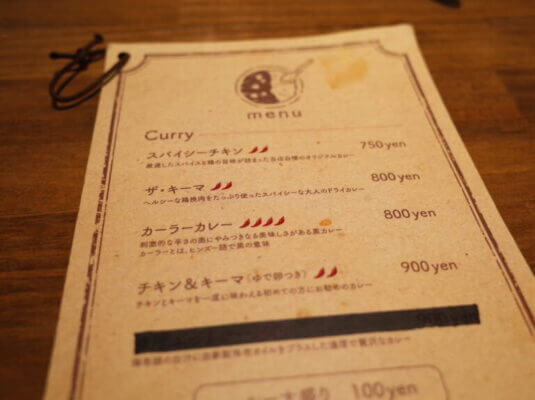 menu
Curry
スパイシーチキン 750yen
厳選したスパイスと鶏の旨味が詰まった当店自慢のオリジナルカレー
ザ・キーマ 800yen
ヘルシーな鶏挽肉をたっぷり使ったスパイシーな大人のドライカレー
カーラーカレー 800yen
刺激的な辛さの奥にやみつきなる美味しさがある黒カレー
カーラーとは、ヒンズー語で黒の意味
チキン&キーマ(ゆで卵つき) 900yen
チキンとキーマを一度に味わえる初めての方にお勧めのカレー
大盛り 100yen